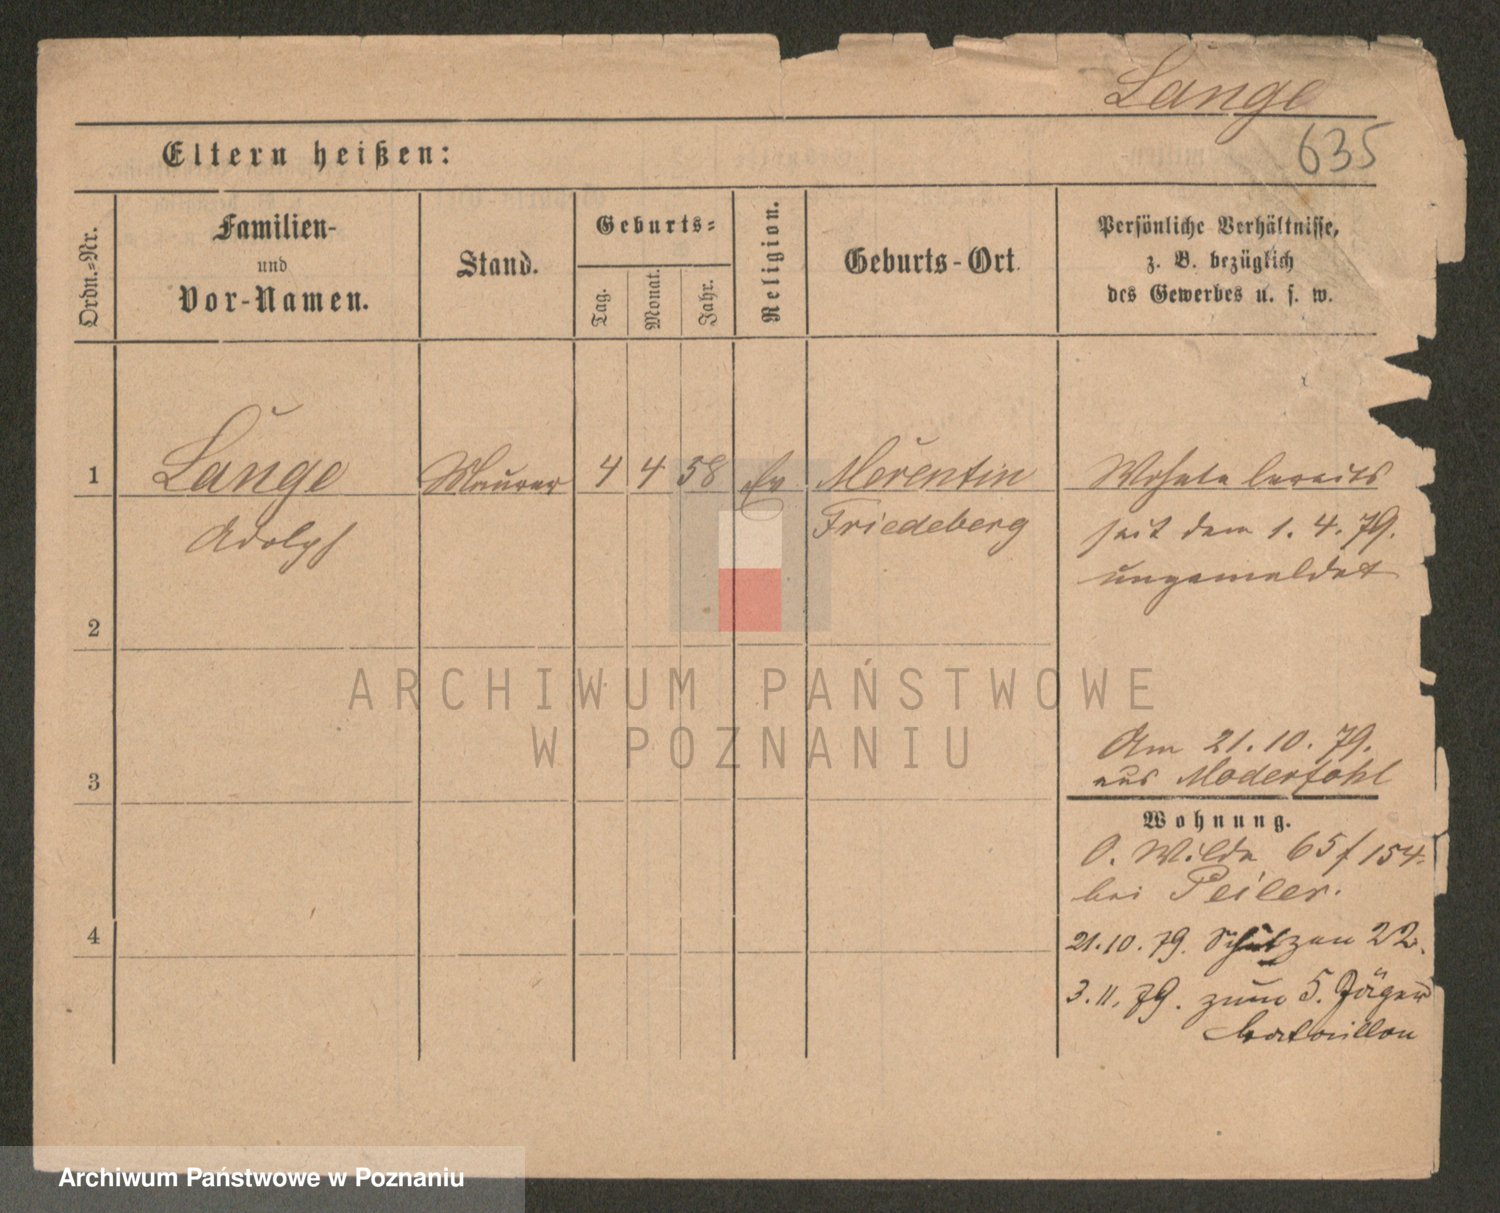 Lange
635
Eltern heißen:
Ordn.-Nr.
Familien-
und
Vor-Namen.
Stand.
Geburts-
Tag.
Monat.
Jahr.
Religion.
Geburts-Ort.
Persönliche Verhältnisse,
z. B. bezüglich
des Gewerbes u. s. w.
1
Lange
Adolph
Maurer
4 4 58
Ev
Merentin
Friedeberg
Wohnte bereits
seit dem 1. 4. 79.
ungemeldet
2
ARCHIWUM PAŃSTWOWE
W POZNANIU
Am 21. 10. 79.
aus
3
Wohnung.
O. Wilda 65/154.
bei Peiler.
4
21. 10. 79. Schützen 22.
3. 11. 79. zum 5. Jäger
Bataillon
Archiwum Państwowe w Poznaniu